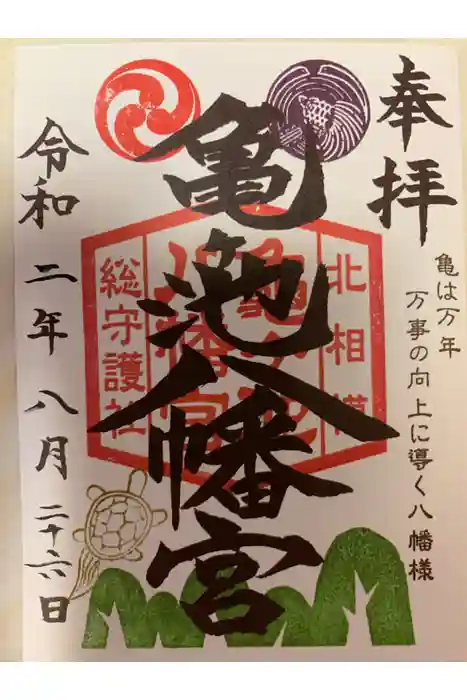 奉拝
亀は万年
万事の向上に導く八幡様
亀池八幡宮
北相模
亀ヶ池
八幡宮
総守護社
令和二年八月二十六日